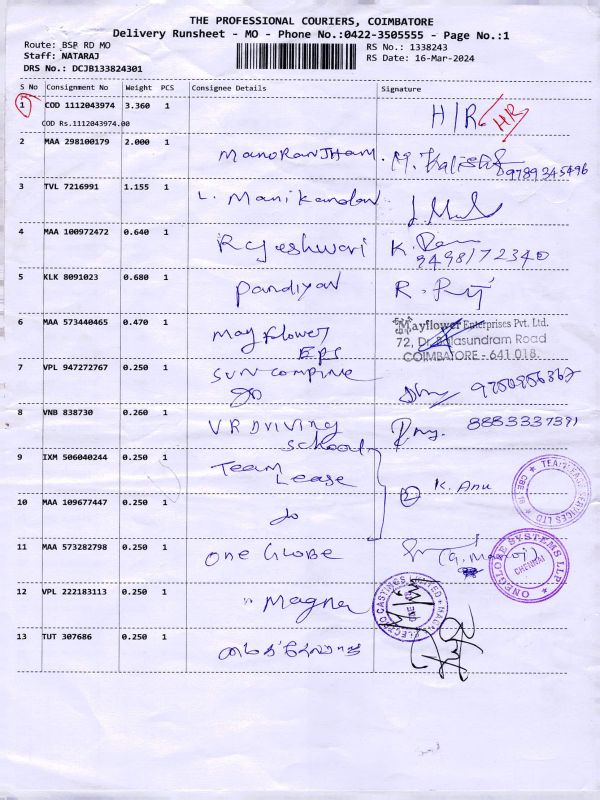 THE PROFESSIONAL COURIERS, COIMBATORE
Delivery Runsheet - MO - Phone No.:0422-3505555 - Page No.:1
Route: BSP RD MO
RS No.: 1338243
Staff: NATARAJ
RS Date: 16-Mar-2024
DRS No.: DCJB133824301
S No Consignment No Weight PCS Consignee Details Signature
1 COD 1112043974 3.360 1 H/R HR
COD Rs.1112043974.00
2 MAA 298100179 2.000 1 Manoranjham. 9789345496
3 TVL 7216991 1.155 1 L. Manikandan
4 MAA 100972472 0.640 1 Rajeshwari K.
9498172340
5 KLK 8091023 0.680 1 Pandiyan R.
6 MAA 573440465 0.470 1 Mayflower
EPS
Mayflower Enterprises Pvt. Ltd.
72, Dr. Balasundram Road
COIMBATORE - 641 018.
7 VPL 947272767 0.250 1 Sun
8 VNB 838730 0.260 1 VR Driving 8883337391
School
9 IXM 506040244 0.250 1 Team
Lease
2 K. Anu
10 MAA 109677447 0.250 1 do
11 MAA 573282798 0.250 1 One Globe
ONEGLOBE SYSTEMS LLP
CHENNAI
12 VPL 222183113 0.250 1 " Magna
13 TUT 307686 0.250 1